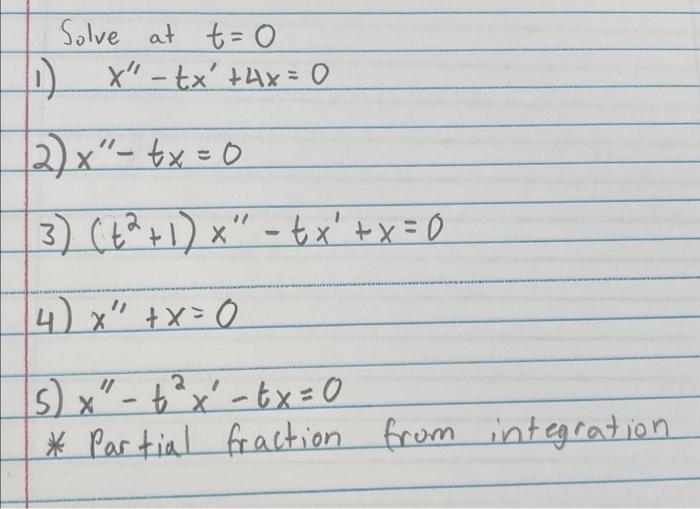 Solve at t = 0
1) x" - tx' + 4x = 0
2) x" - tx = 0
3) (t² + 1) x" - tx' + x = 0
4) x" + x = 0
5) x" - t²x' - tx = 0
* Partial fraction from integration